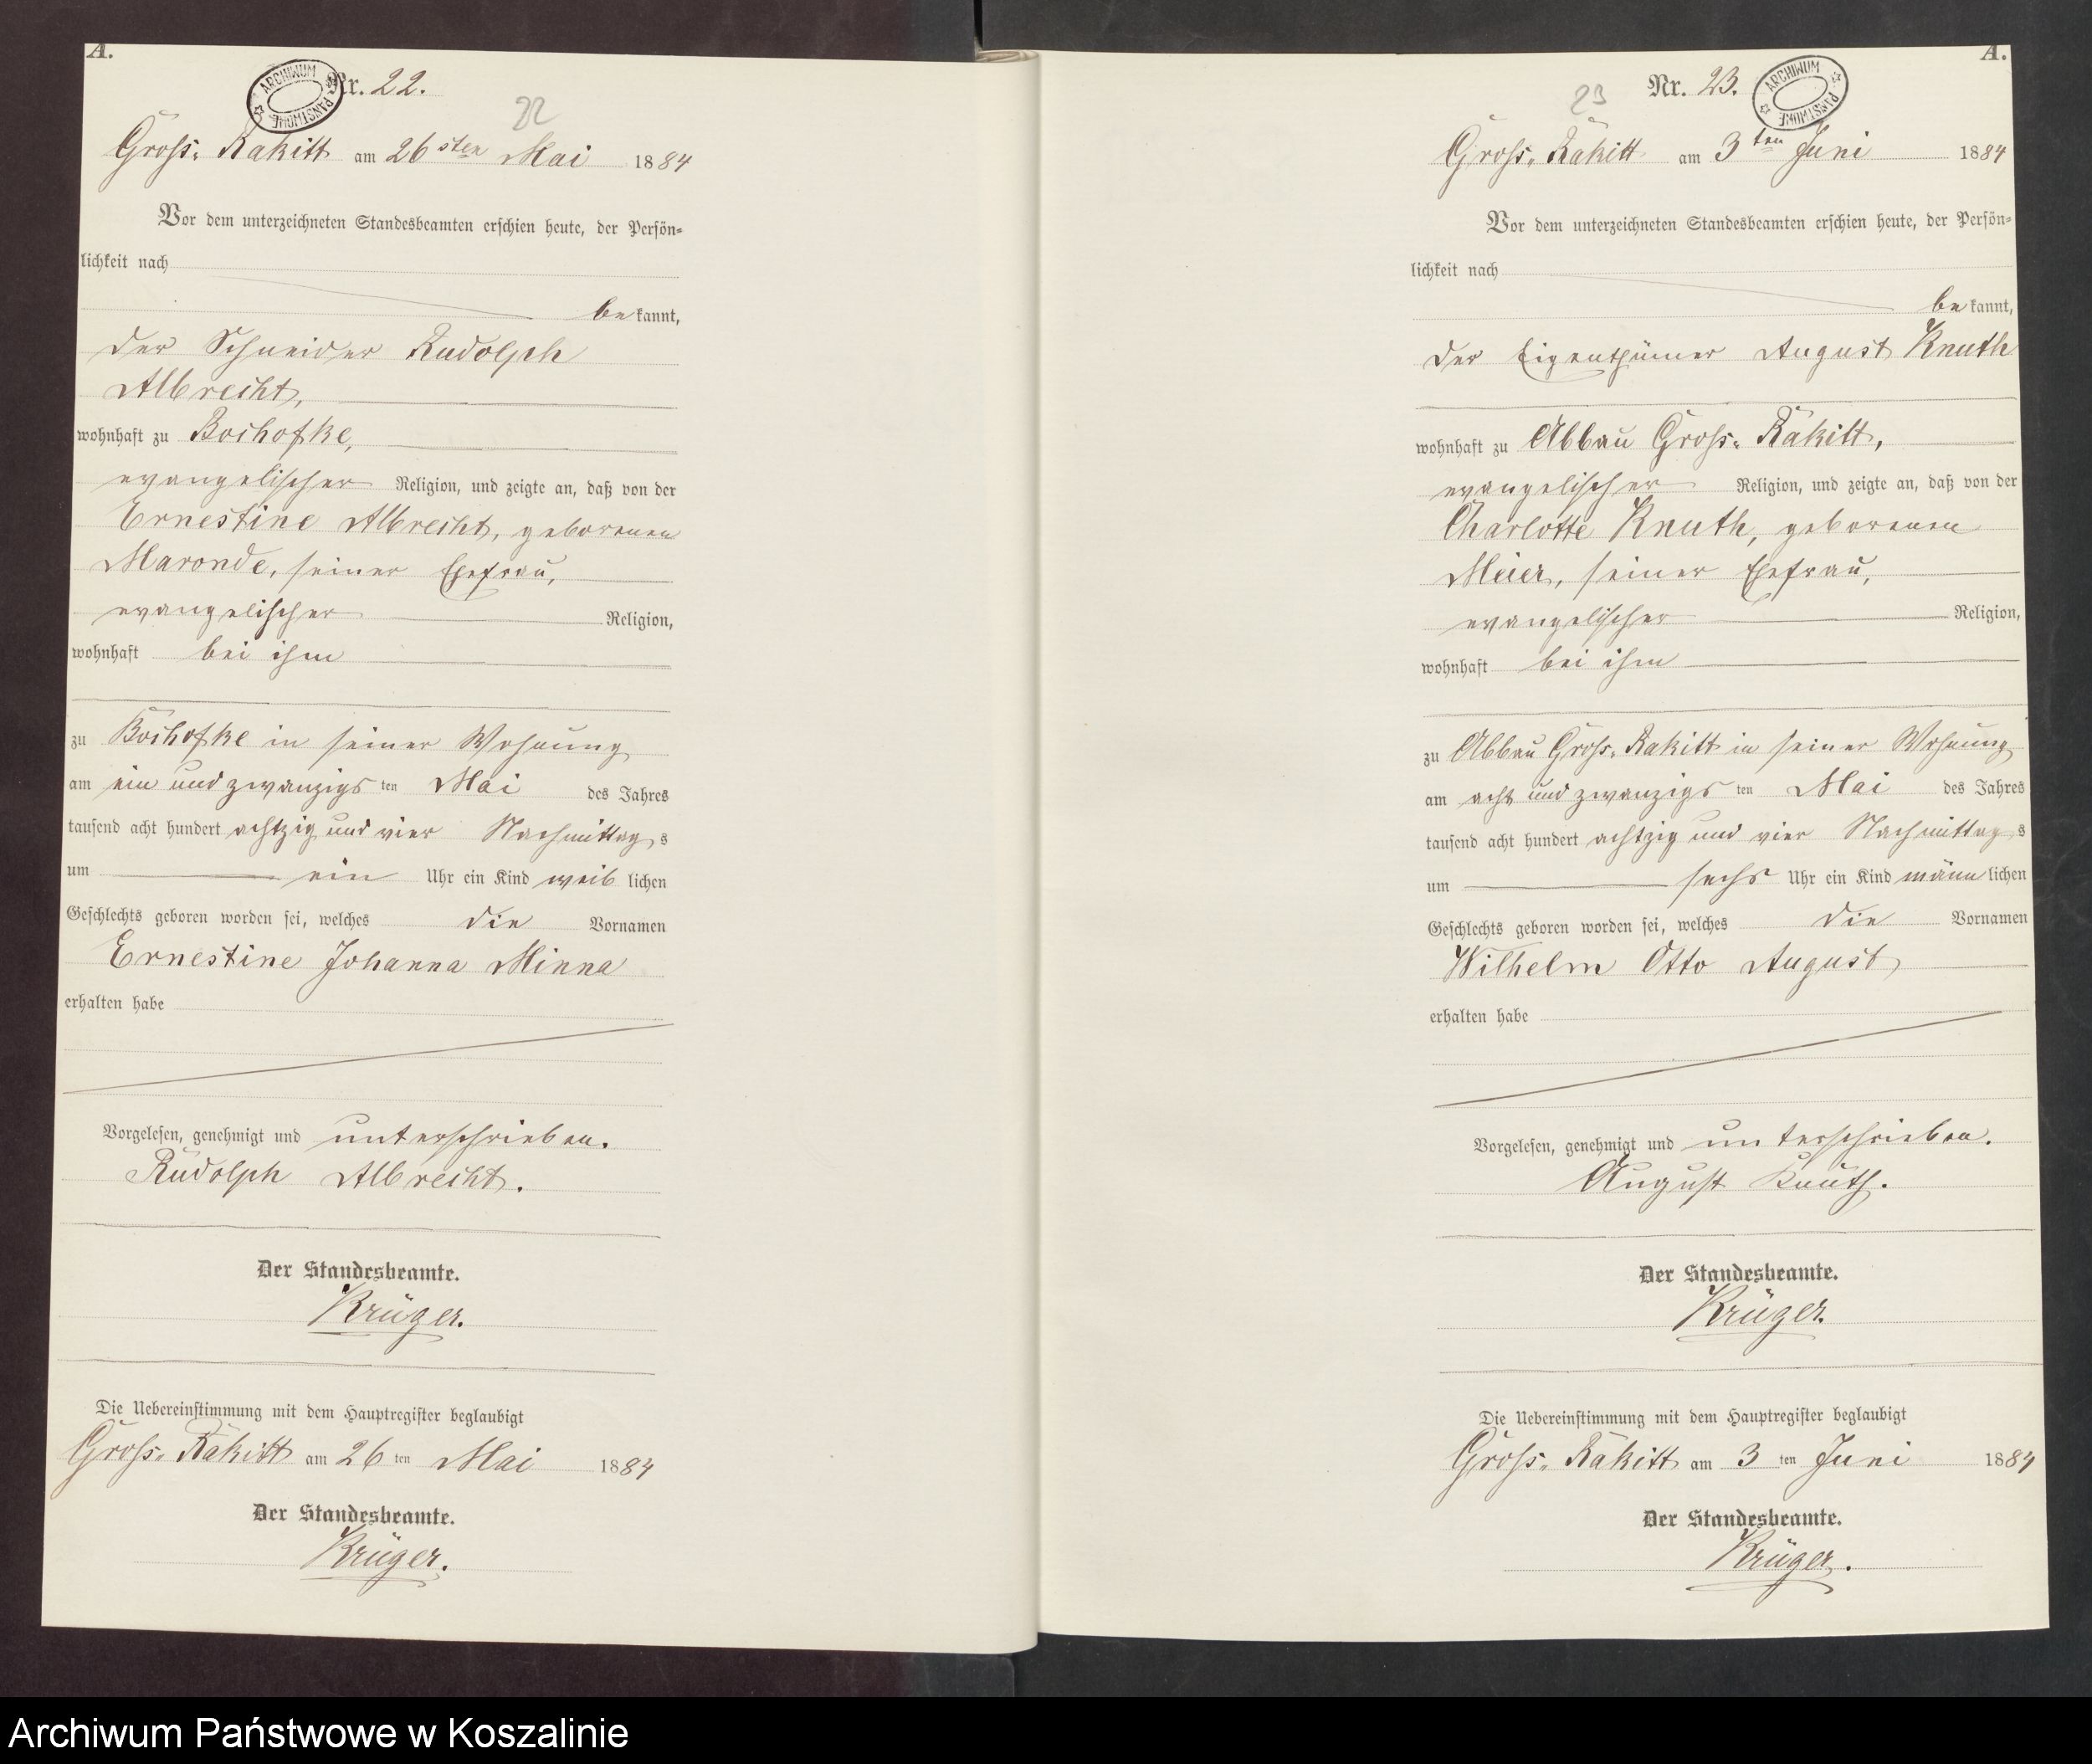 A.
ARCHIWUM PAŃSTWOWE
Nr. 22.
22
Gross-Rakitt am 26sten Mai 1884
Vor dem unterzeichneten Standesbeamten erschien heute, der Persön-
lichkeit nach
bekannt,
der Schneider Rudolph
Albrecht,
wohnhaft zu Bochofke,
evangelischer Religion, und zeigte an, daß von der
Ernestine Albrecht, geborenen
Maronde, seiner Ehefrau,
evangelischer Religion,
wohnhaft bei ihm
zu Bochofke in seiner Wohnung
am ein und zwanzigsten Mai des Jahres
tausend acht hundert achtzig und vier Nachmittags
um ein Uhr ein Kind weiblichen
Geschlechts geboren worden sei, welches die Vornamen
Ernestine Johanna Minna
erhalten habe
Vorgelesen, genehmigt und unterschrieben.
Rudolph Albrecht.
Der Standesbeamte.
Krüger.
Die Uebereinstimmung mit dem Hauptregister beglaubigt
Gross-Rakitt am 26ten Mai 1884
Der Standesbeamte.
Krüger.
A.
Nr. 23.
ARCHIWUM PAŃSTWOWE
23
Gross-Rakitt am 3ten Juni 1884
Vor dem unterzeichneten Standesbeamten erschien heute, der Persön-
lichkeit nach
bekannt,
der Eigenthümer August Knuth
wohnhaft zu Abbau Gross-Rakitt,
evangelischer Religion, und zeigte an, daß von der
Charlotte Knuth, geborenen
Meier, seiner Ehefrau,
evangelischer Religion,
wohnhaft bei ihm
zu Abbau Gross-Rakitt in seiner Wohnung
am acht und zwanzigsten Mai des Jahres
tausend acht hundert achtzig und vier Nachmittags
um sechs Uhr ein Kind männlichen
Geschlechts geboren worden sei, welches die Vornamen
Wilhelm Otto August
erhalten habe
Vorgelesen, genehmigt und unterschrieben.
August Knuth.
Der Standesbeamte.
Krüger.
Die Uebereinstimmung mit dem Hauptregister beglaubigt
Gross-Rakitt am 3ten Juni 1884
Der Standesbeamte.
Krüger.
Archiwum Państwowe w Koszalinie